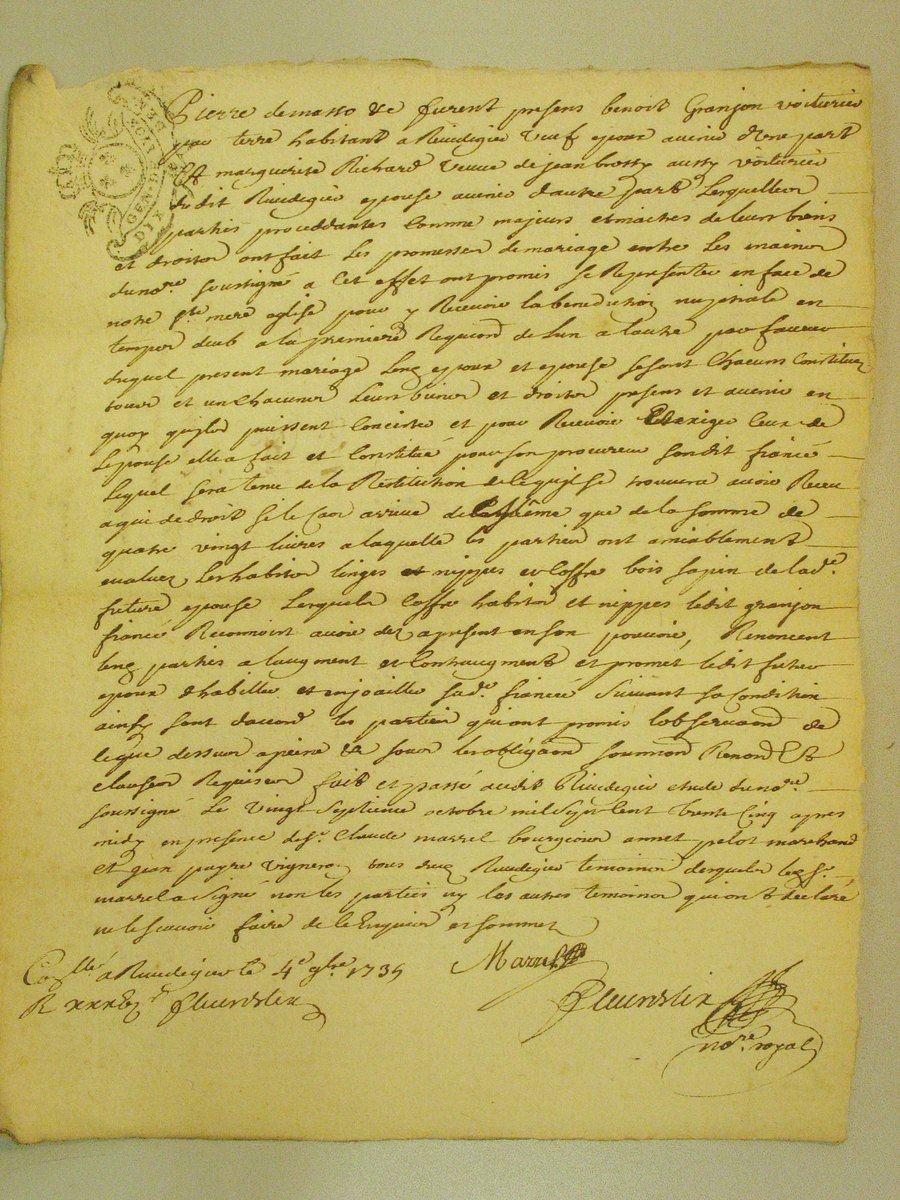 GEN. D. LYON
DIX DEN
Pierre demasso de furent presens benoit Granjon voiturier
par terre habitant a Rivedigier veuf epoux avenir d'une part
Et marguerite Richard veuve de jean brossy aussy voiturier
dudit Rivedigier epouse avenir d'autre part Lesquelles
parties proceddantes Comme majeurs et maitres de leurs biens
et droitor ont fait les promesses de mariage entre les mainor
du no.re soussigné a Cet effet ont promis se Representer en face de
notre s.te mere eglise pour y Recevoir la benediction nuptiale en
tempor deub a la premiere Requiond de l'un a lautre par faveur
duquel present mariage Lesd epoux et epouse se sont Chacuns Constitués
tous et un chacuner Leurs bienor et droitor presens et avenir en
quoy qu'ilor puissent Concister et pour Recevoir Et exiger Ceux de
Lepouse elle a fait et Constitué pour son procureur sondit fiancé
Lequel sera tenu de la Restitution de le qu'il se trouvera avoir Receu
a qui de droit si le Cas arrive de même que de la somme de
quatre vingt livres a laquelle les parties ont amiablement
evaluez Les habitor linges et nippes et Coffre bois sapin de lad.e
future epouse Lesquels Coffre habitor et nippes ledit granjon
fiancé Reconnoit avoir dez apresent en son pouvoir, Renoncent
lesd parties a laugment et Contraugment et promet ledit futur
epoux d'habiller et enjoailler sad.e fiancée Suivant sa Condition
ainsy sont daccord les parties qui ont promis l'observaond de
le que dessus apeine &a sous les obligaond soumond Renond Et
clauses Requises fait et passé audit Rivedigier etude du no.re
soussigné Le vingt Septieme octobre mil Sept Cent trente Cinq apres
midy en presence de s.r Claude marrel bourgeois annet pelot marchand
et jean payre vigneron tous dud Rivedigier temoinor desquels led s.r
marrel a signé non les parties ny les autres temoinor qui ont declaré
ne le scavoir faire de le Enquis et sommez
Con.llé a Rivedigier le 4e 9bre 1735 Marrel
R Fleurdelix Fleurdelix
no.re royal